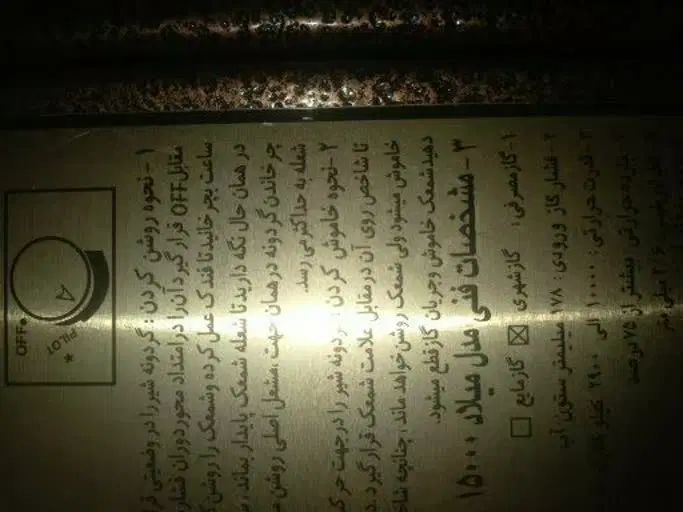 OFF
PILOT
۱ - نحوه روشن کردن : گردونه شیر را در وضعیتی
مقابل OFF قرار گیرد آن را در امتداد محور دوران فشار
ساعت بچرخانید تا فندک عمل کرده و شمعک را روشن
در همان حال نگه دارید تا شعله شمعک پایدار بماند ،
چرخاندن گردونه در همان جهت ،مشعل اصلی روشن
شعله به حداکثر می رسد.
۲- نحوه خاموش کردن : گردونه شیر را در جهت
تا شاخص روی آن در مقابل علامت شمعک قرار گیرد
خاموش میشود ولی شمعک روشن خواهد ماند ، چنانچه
دهید شمعک خاموش و جریان گاز قطع میشود.
۳ - مشخصات فنی مدل میلاد ۱۵۰۰۰
۱- گاز مصرفی : گاز شهری ☒ گاز مایع ☐
۲- فشار گاز ورودی : ۱۷۸ میلیمتر ستون آب
۳- قدرت حرارتی : ۱۰۰۰۰ الی ۲۹۰۰
حرارتی بیشتر از ۷۵ درصد